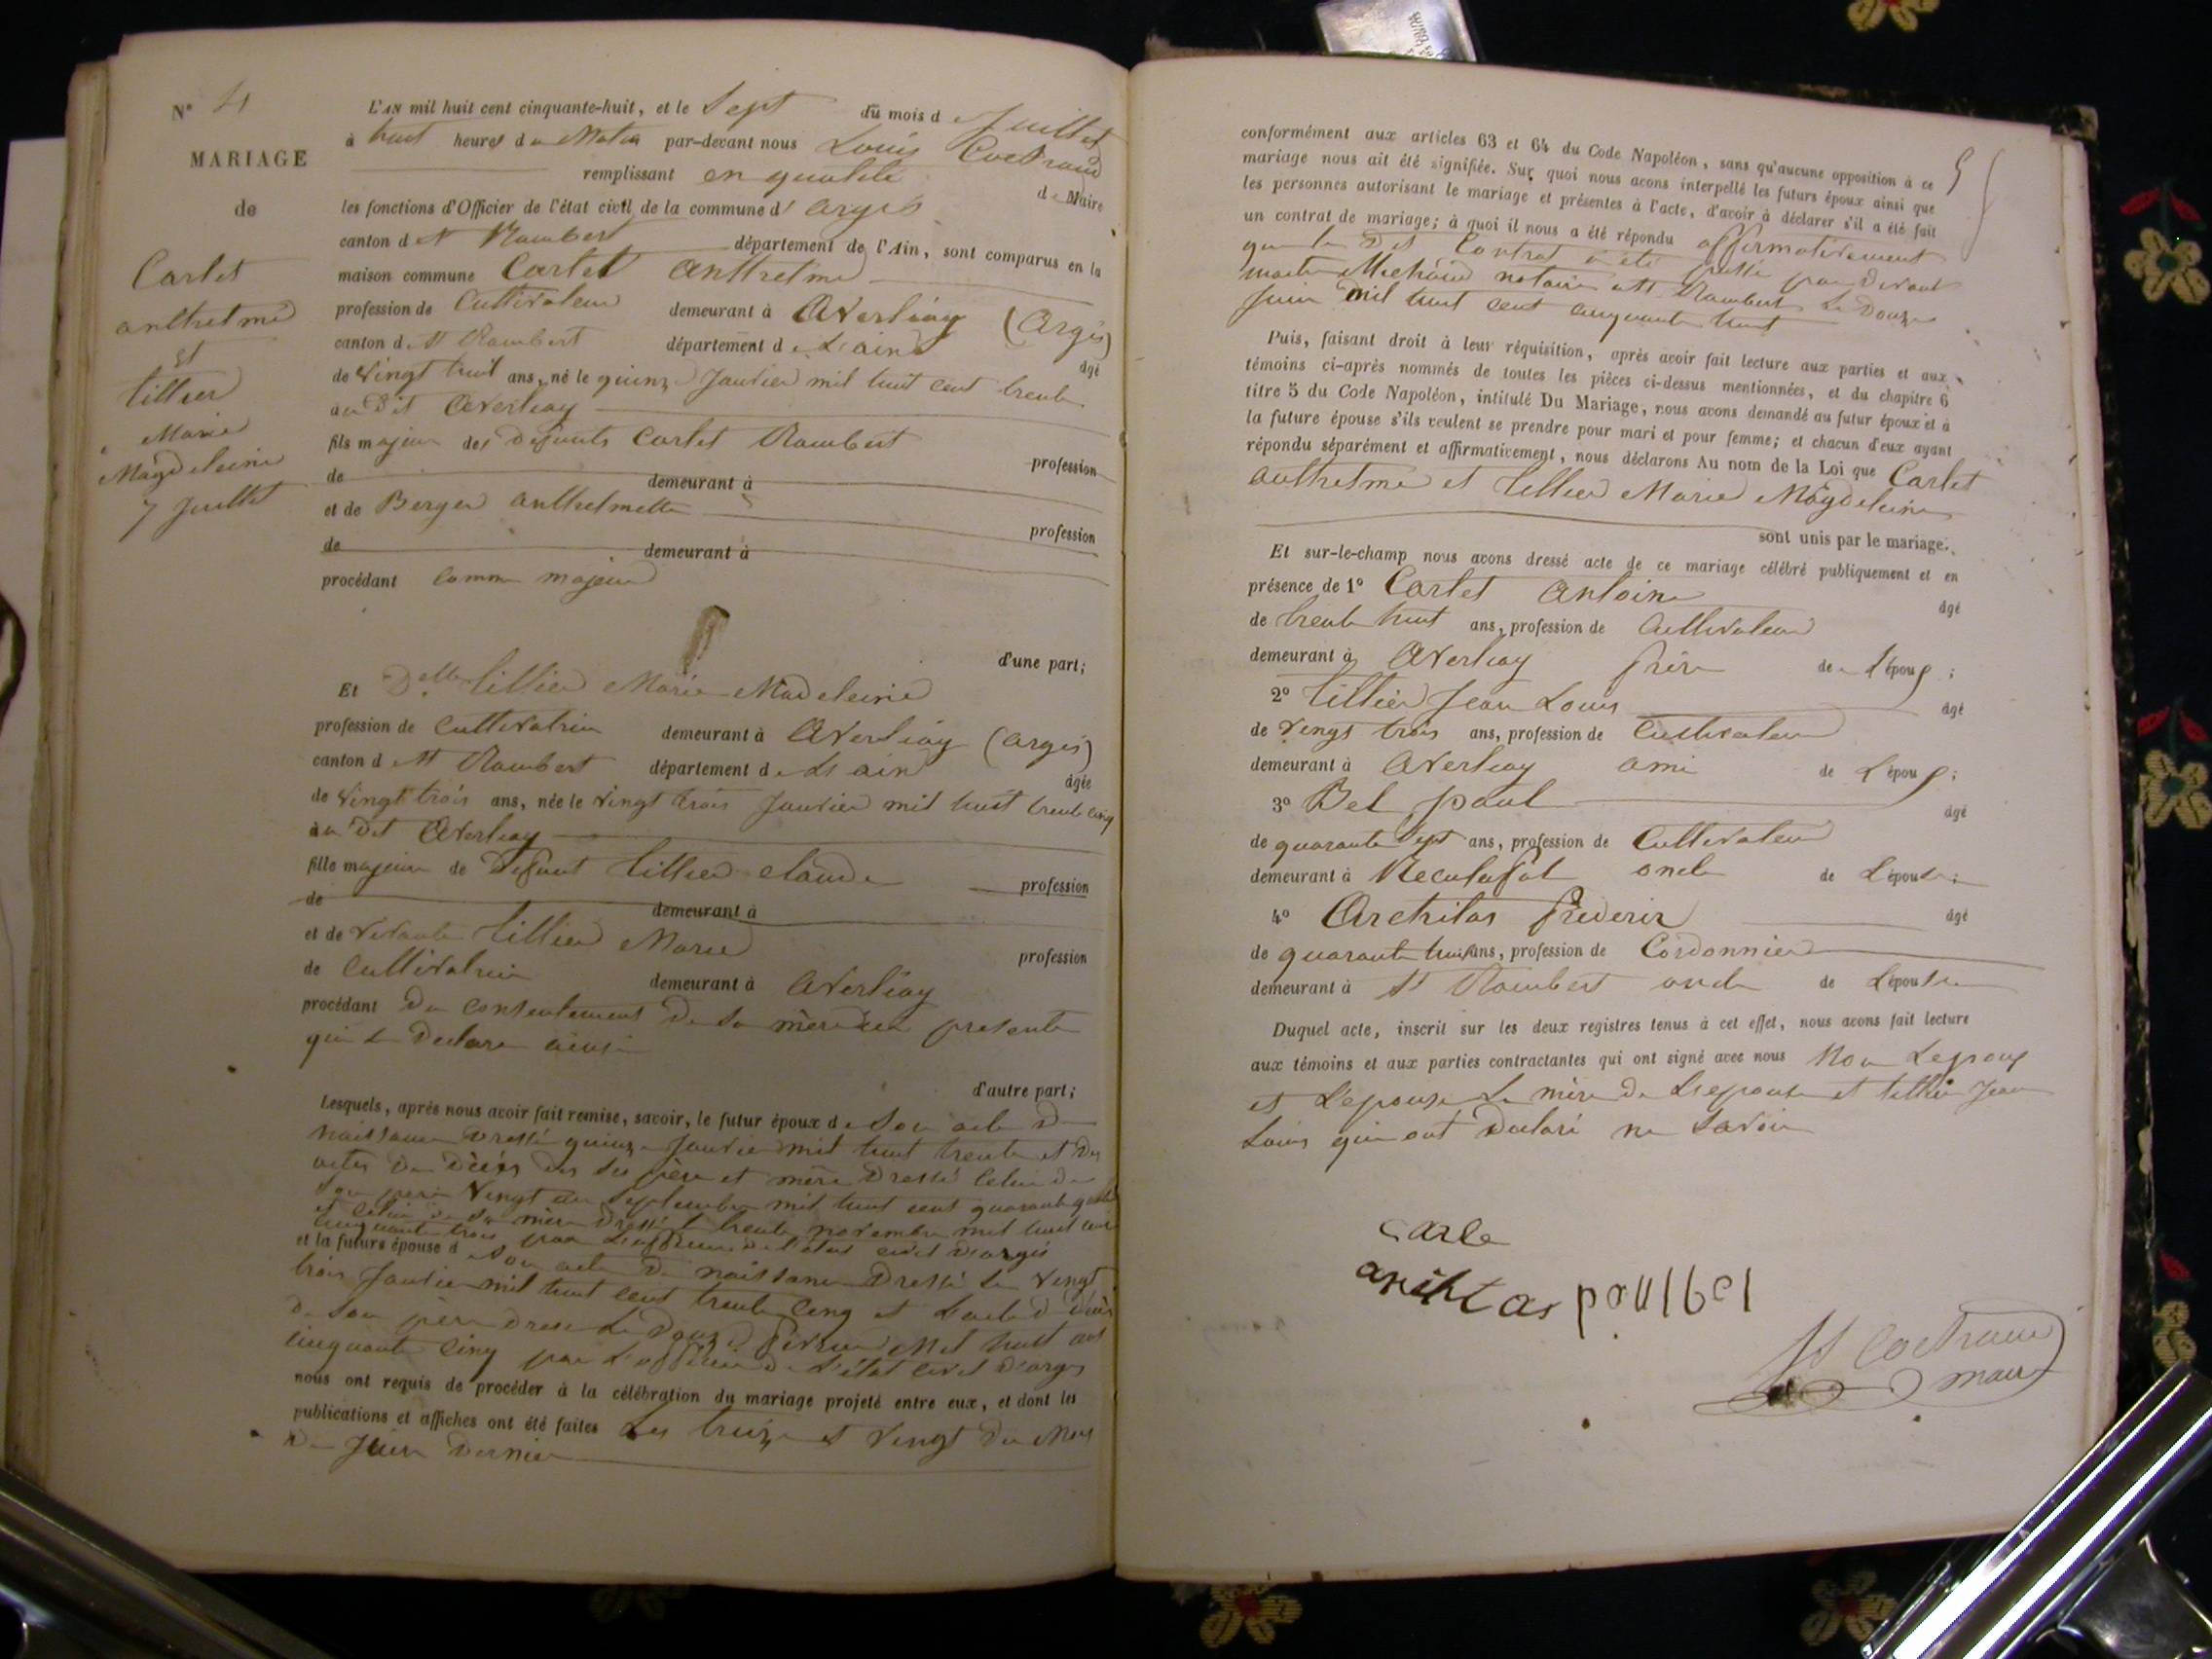 N° 4
MARIAGE
de
Carlet
anthelme
et
tillier
Marie
Magdeleine
7 Juillet
L'AN mil huit cent cinquante-huit, et le Sept du mois de Juillet
à huit heures du Matin par-devant nous Louis
remplissant en qualité de Maire
les fonctions d'Officier de l'état civil de la commune d'argis
canton de St Rambert département de l'Ain, sont comparus en la
maison commune Carlet anthelme
profession de Cultivateur demeurant à Averliay (Argis)
canton de St Rambert département de L'ain âgé
de Vingt huit ans, né le quinze Janvier mil huit cent trente
au dit Averliay
fils majeur des défunts Carlet Rambert profession
de demeurant à
et de Berger anthelmette profession
de demeurant à
procédant comme majeur
d'une part;
Et Delle tillier Marie Madeleine
profession de cultivatrice demeurant à Averliay (argis)
canton de St Rambert département de L'ain âgée
de vingt trois ans, née le vingt trois Janvier mil huit trente cinq
au dit Averliay
fille majeure de défunt tillier claude profession
de demeurant à
et de vivante tillier Marie profession
de cultivatrice demeurant à Averliay
procédant du consentement de sa mère ici presente
qui le declare ainsi
d'autre part;
Lesquels, après nous avoir fait remise, savoir, le futur époux de son acte de
naissance dressé quinze Janvier mil huit trente et des
actes de décès des ses père et mère dressé celui de
son père vingt un septembre mil huit cent quarante quatre
et celui de sa mère dressé le trente novembre mil huit cent
cinquante trois par L'officier de l'état civil d'argis
et la future épouse de son acte de naissance dressé le vingt
trois Janvier mil huit cent trente cinq et L'acte de décès
de son père dressé le douze février mil huit cent
cinquante cinq par L'officier de L'état civil d'argis
nous ont requis de procéder à la célébration du mariage projeté entre eux, et dont les
publications et affiches ont été faites Les treize et vingt du Mois
de Juin dernier
5
conformément aux articles 63 et 64 du Code Napoléon, sans qu'aucune opposition à ce
mariage nous ait été signifiée. Sur quoi nous avons interpellé les futurs époux ainsi que
les personnes autorisant le mariage et présentes à l'acte, d'avoir à déclarer s'il a été fait
un contrat de mariage; à quoi il nous a été répondu affirmativement
que le dit Contrat a été passé par devant
maître notaire à St Rambert Le Douze
Juin mil huit cent cinquante huit
Puis, faisant droit à leur réquisition, après avoir fait lecture aux parties et aux
témoins ci-après nommés de toutes les pièces ci-dessus mentionnées, et du chapitre 6
titre 5 du Code Napoléon, intitulé Du Mariage, nous avons demandé au futur époux et à
la future épouse s'ils veulent se prendre pour mari et pour femme; et chacun d'eux ayant
répondu séparément et affirmativement, nous déclarons Au nom de la Loi que Carlet
anthelme et tillier Marie Magdeleine
sont unis par le mariage.
Et sur-le-champ nous avons dressé acte de ce mariage célébré publiquement et en
présence de 1° Carlet Antoine âgé
de trente huit ans, profession de Cultivateur
demeurant à Averliay frère de l'époux;
2° tillier Jean Louis âgé
de vingt trois ans, profession de Cultivateur
demeurant à Averliay ami de L'époux;
3° Bel paul âgé
de quarante sept ans, profession de Cultivateur
demeurant à Reculafol oncle de L'épouse;
4° Archilas frederic âgé
de quarante huit ans, profession de Cordonnier
demeurant à St Rambert oncle de L'épouse
Duquel acte, inscrit sur les deux registres tenus à cet effet, nous avons fait lecture
aux témoins et aux parties contractantes qui ont signé avec nous Non Lepoux
et L'epouse La mère de L'epouse et tillier Jean
Louis qui ont declaré ne savoir
carle
arihtas paul bel
maire